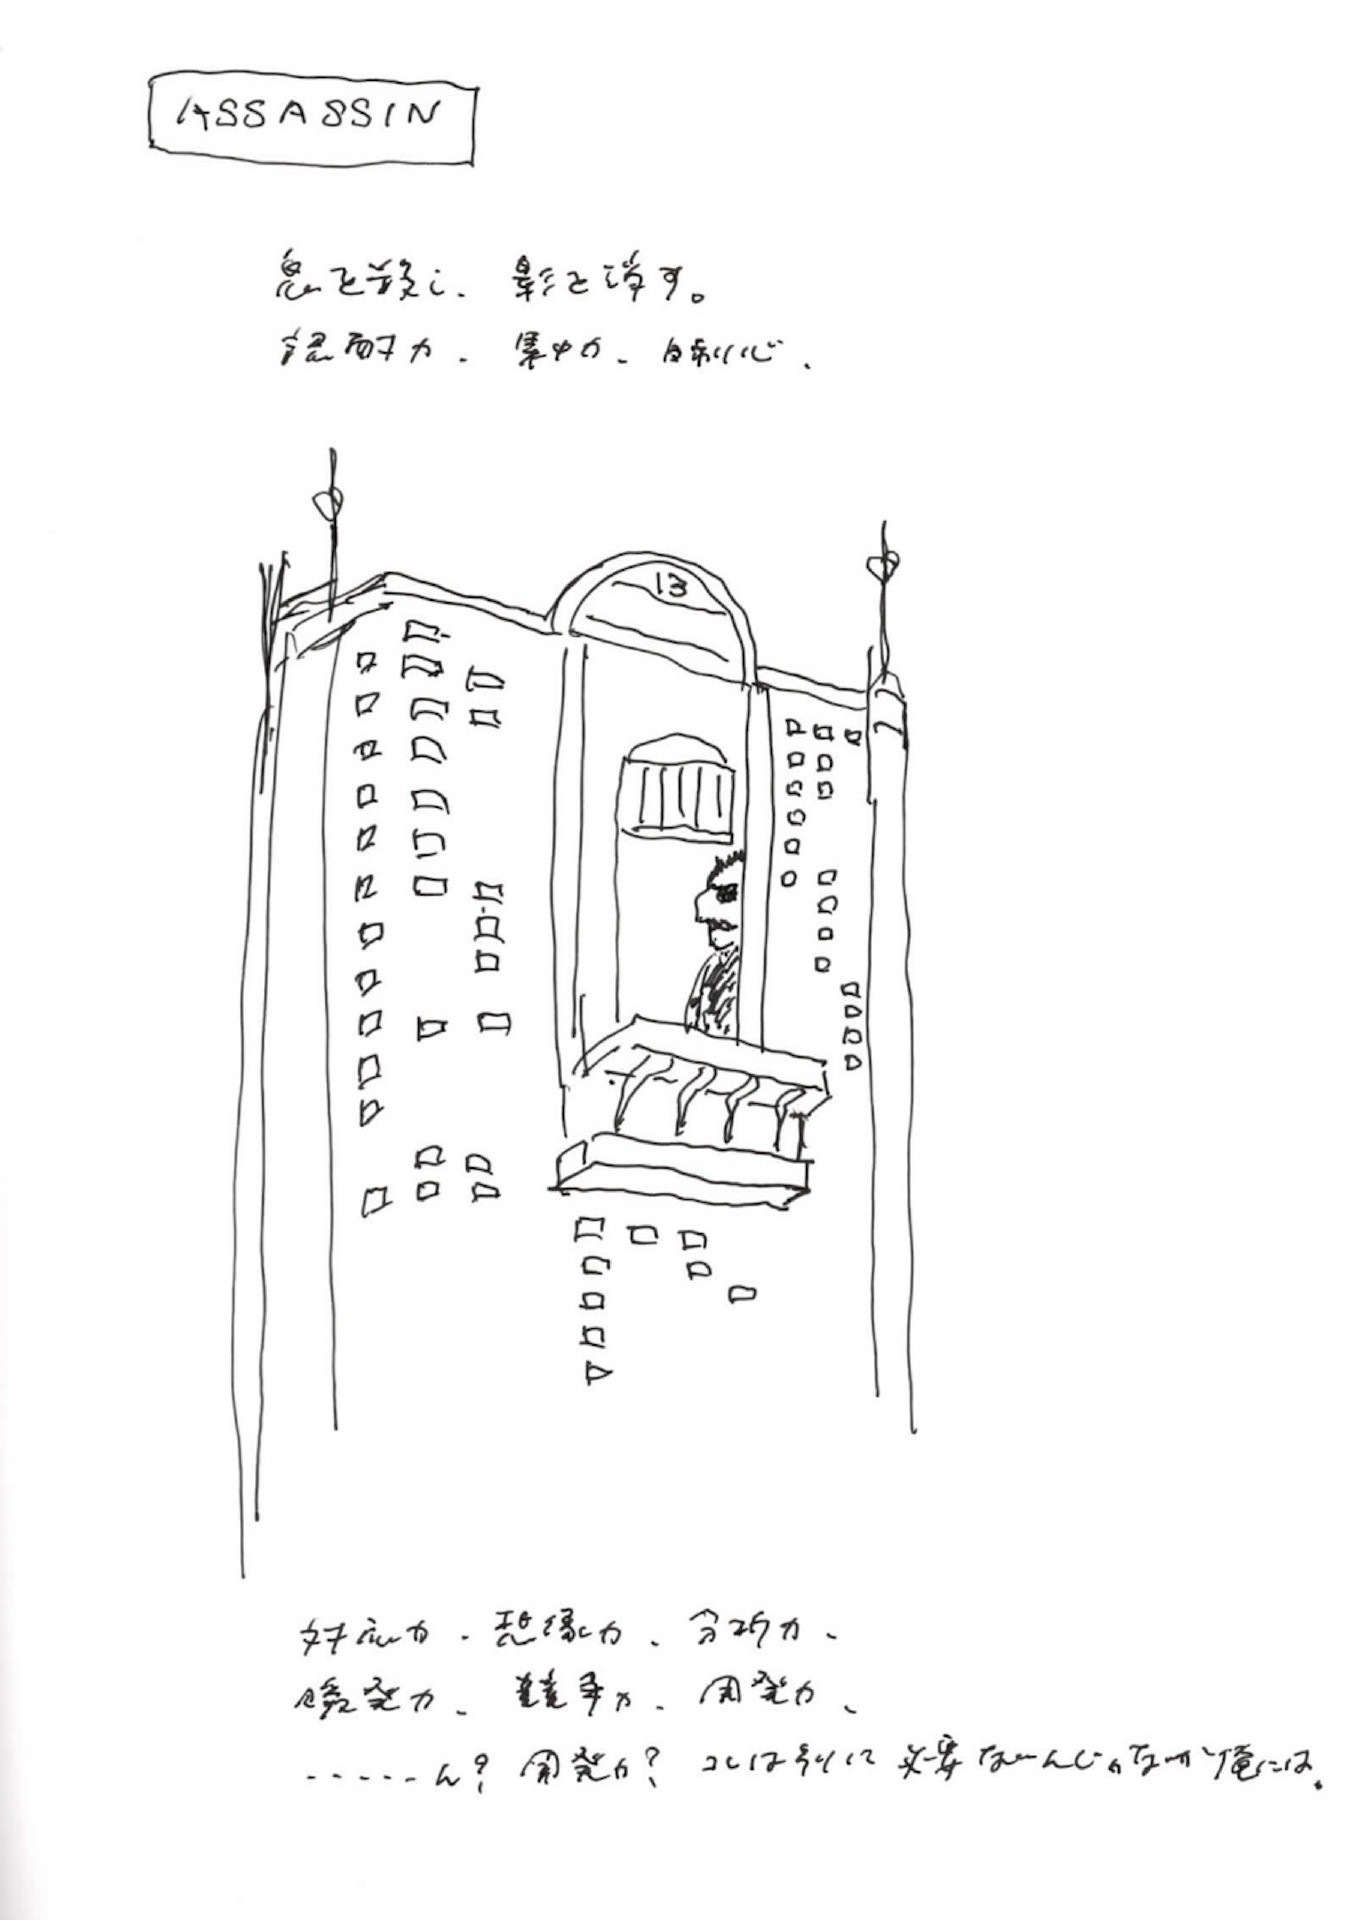 ASSASSIN
息を殺し、影を消す。
忍耐力、集中力、自制心、
13
対応力、想像力、分析力、
瞬発力、競争力、開発力、
……ん？開発力？コレは別に必要ないんじゃないか俺には。